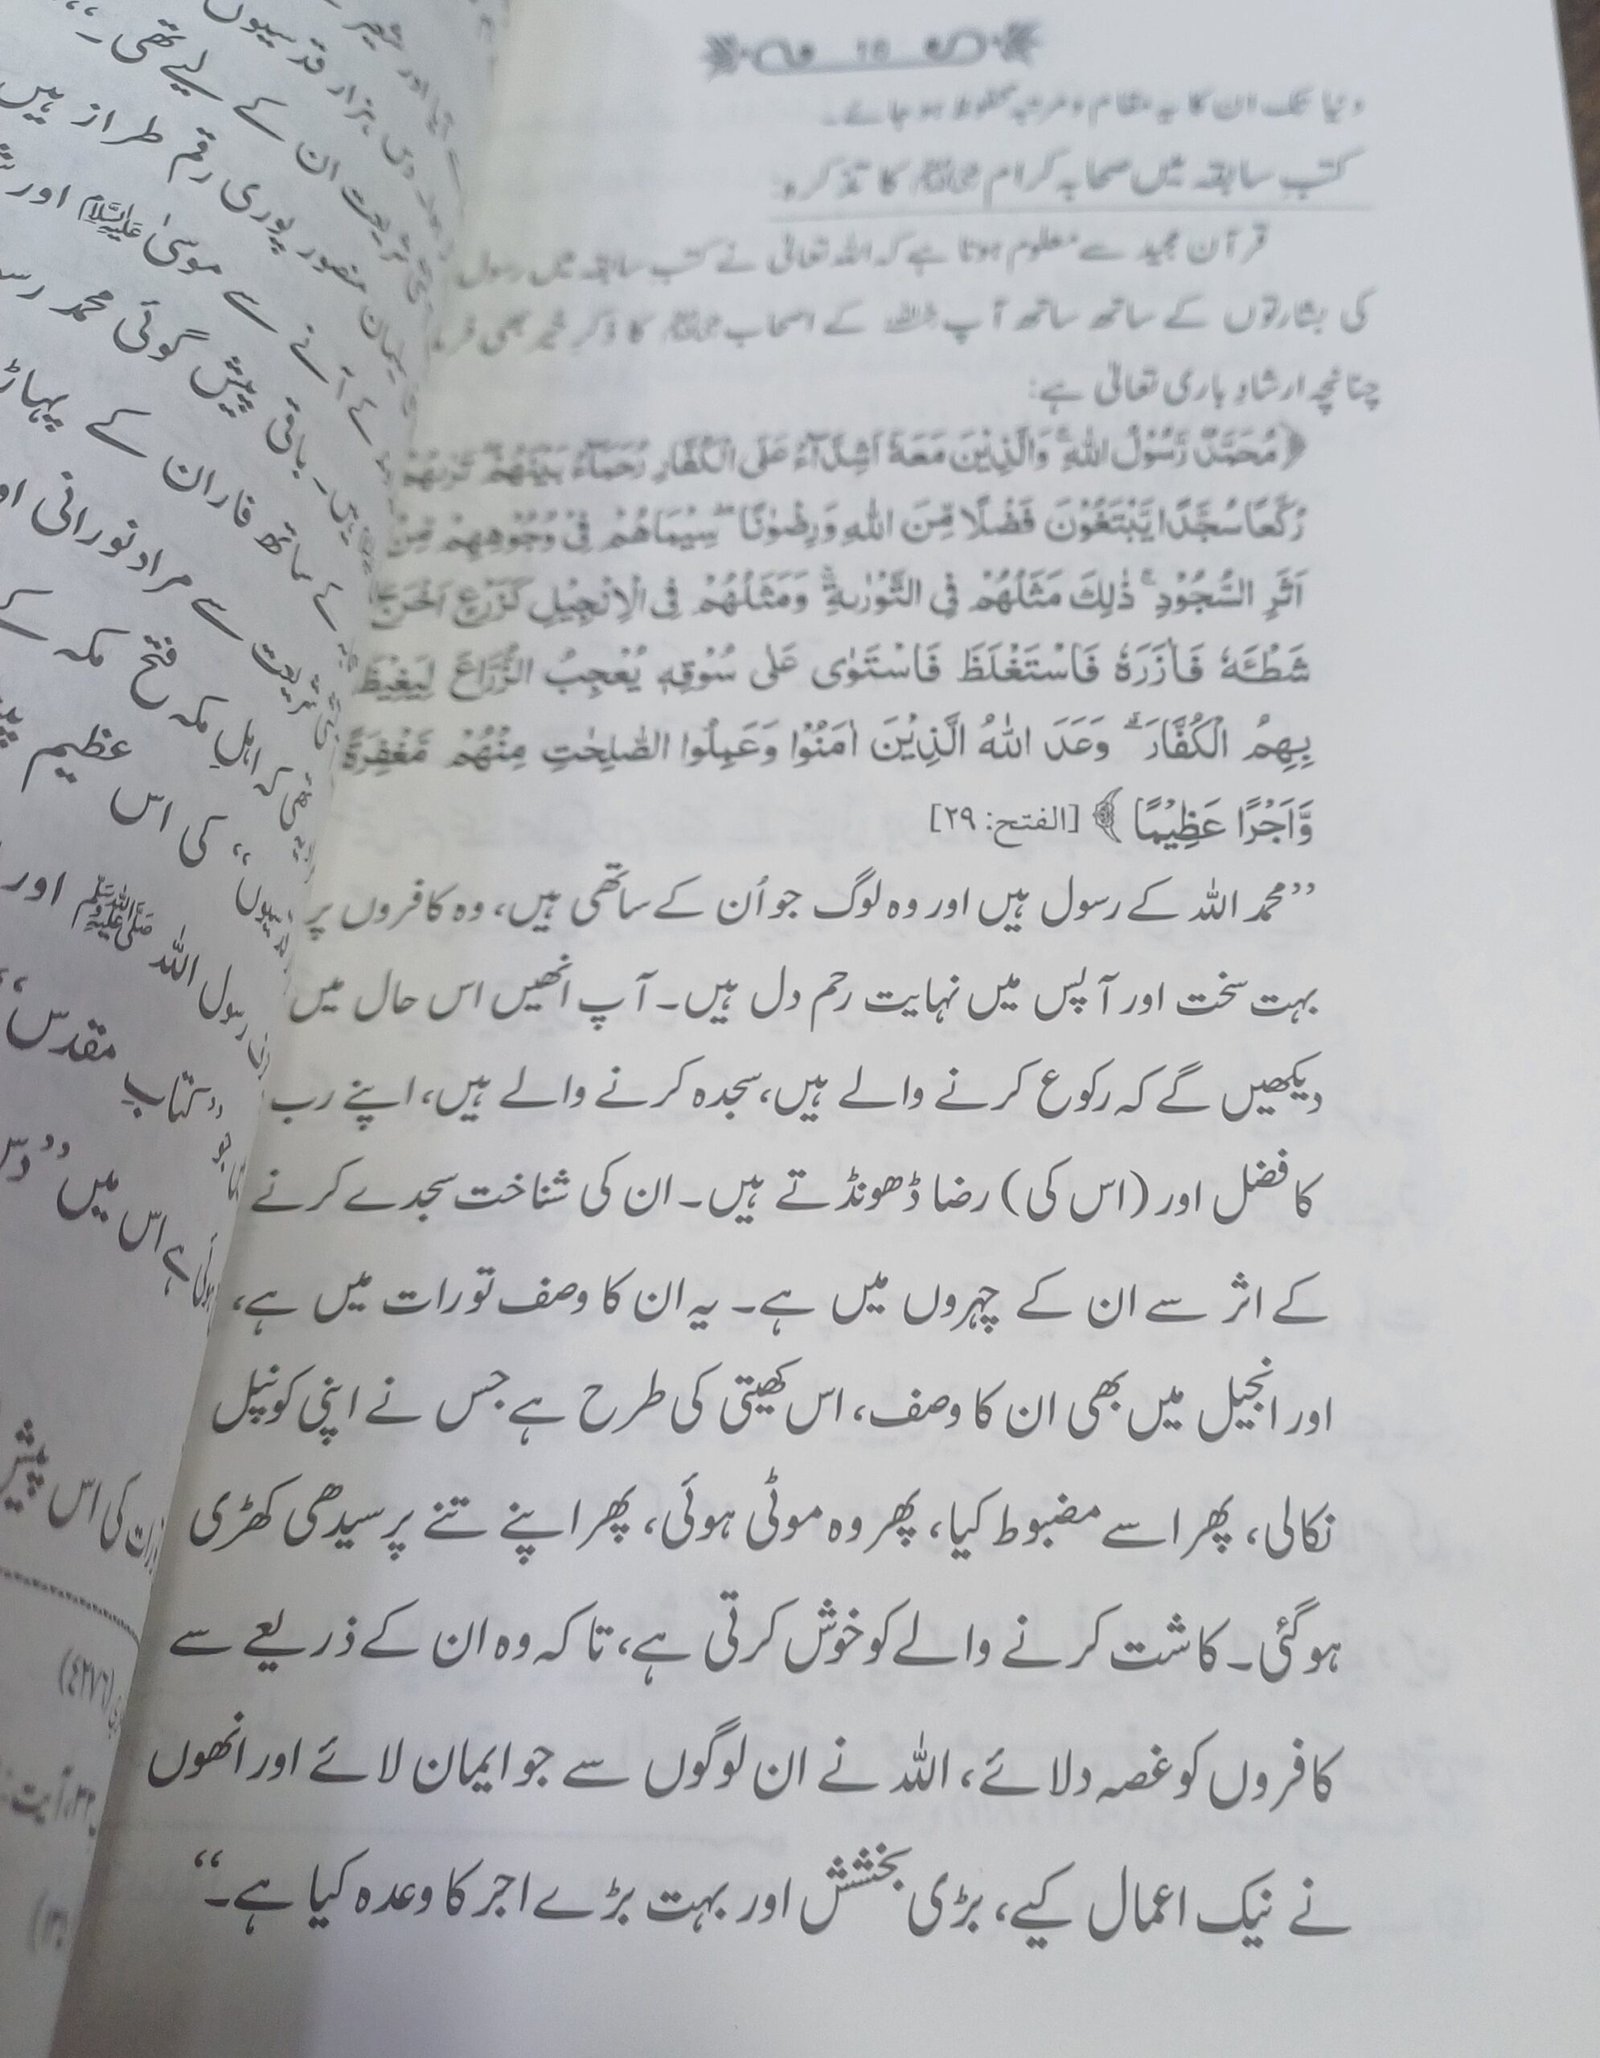 دنیا تک ان کا یہ مقام و مرتبہ محفوظ ہو جائے۔
کتب سابقہ میں صحابہ کرام رضی اللہ عنہم کا تذکرہ:
قرآن مجید سے معلوم ہوتا ہے کہ اللہ تعالیٰ نے کتب سابقہ میں رسول
کی بشارتوں کے ساتھ ساتھ آپ ﷺ کے اصحاب کا ذکر خیر بھی
چنانچہ ارشاد باری تعالیٰ ہے:
﴿مُحَمَّدٌ رَّسُوْلُ اللّٰهِ ۚ وَالَّذِيْنَ مَعَهٗۤ اَشِدَّآءُ عَلَى الْكُفَّارِ رُحَمَآءُ بَيْنَهُمْ تَرٰىهُمْ
رُكَّعًا سُجَّدًا يَّبْتَغُوْنَ فَضْلًا مِّنَ اللّٰهِ وَرِضْوَانًا ۖ سِيْمَاهُمْ فِيْ وُجُوْهِهِمْ مِّنْ
اَثَرِ السُّجُوْدِ ۚ ذٰلِكَ مَثَلُهُمْ فِي التَّوْرٰىةِ ۖ وَمَثَلُهُمْ فِي الْاِنْجِيْلِ كَزَرْعٍ اَخْرَجَ
شَطْـَٔهٗ فَاٰزَرَهٗ فَاسْتَغْلَظَ فَاسْتَوٰى عَلٰى سُوْقِهٖ يُعْجِبُ الزُّرَّاعَ لِيَغِيْظَ
بِهِمُ الْكُفَّارَ ۗ وَعَدَ اللّٰهُ الَّذِيْنَ اٰمَنُوْا وَعَمِلُوا الصّٰلِحٰتِ مِنْهُمْ مَّغْفِرَةً
وَّاَجْرًا عَظِيْمًا ﴾ [الفتح: ٢٩]
’’محمد اللہ کے رسول ہیں اور وہ لوگ جو اُن کے ساتھی ہیں، وہ کافروں پر
بہت سخت اور آپس میں نہایت رحم دل ہیں۔ آپ انھیں اس حال میں
دیکھیں گے کہ رکوع کرنے والے ہیں، سجدہ کرنے والے ہیں، اپنے رب
کا فضل اور (اس کی) رضا ڈھونڈتے ہیں۔ ان کی شناخت سجدے کرنے
کے اثر سے ان کے چہروں میں ہے۔ یہ ان کا وصف تورات میں ہے،
اور انجیل میں بھی ان کا وصف، اس کھیتی کی طرح ہے جس نے اپنی کونپل
نکالی، پھر اسے مضبوط کیا، پھر وہ موٹی ہوئی، پھر اپنے تنے پر سیدھی کھڑی
ہو گئی۔ کاشت کرنے والے کو خوش کرتی ہے، تاکہ وہ ان کے ذریعے سے
کافروں کو غصہ دلائے، اللہ نے ان لوگوں سے جو ایمان لائے اور انھوں
نے نیک اعمال کیے، بڑی بخشش اور بہت بڑے اجر کا وعدہ کیا ہے۔‘‘
ہزار قدسیوں
شریعت ان کے لیے تھی۔‘‘
سلیمان منصور پوری رقم طراز ہیں
کے آنے سے موسیٰ علیہ السلام اور
ہیں۔ باقی پیش گوئی محمد رسو
کے ساتھ فاران کے پہاڑ
شریعت سے مراد نورانی او
تھی کہ اہل مکہ فتح مکہ کے
کی اس عظیم
رسول اللہ صلی اللہ علیہ وسلم اور
جو ’’کتاب مقدس‘‘
ہوئی ہے اس میں ’’دس
کی اس پیش